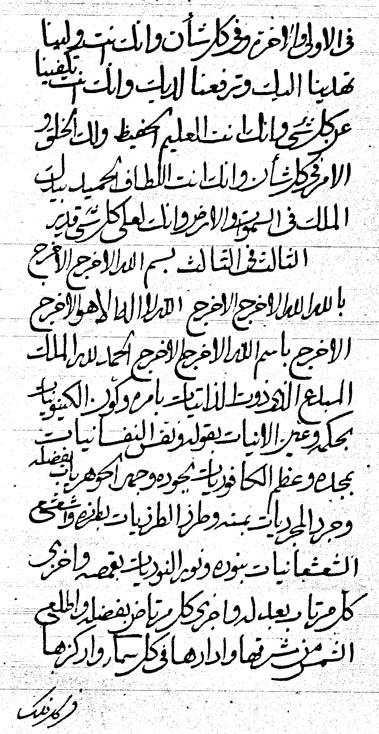 فی الاولی والاخرة وفی کل شأن وانک انت ولینا
تهدینا الیک وترفعنا لدیک وانک انت تکفینا
عن کل شیء وانک انت العلیم الحفیظ ولک الخلق و
الامر فی کل شأن وانک انت اللطاف الحمید بیدک
الملک فی السموات والارض وانک لعلی کل شیء قدیر
الثالث فی الثالث بسم الله الافرج الافرج
بالله الله الافرج الافرج الله لا اله الا هو الافرج
الافرج باسم الله الافرج الافرج الحمد لله الملک
المبدع الذی ذوت الذاتیات بامره وکون الکینونیات
بحکمه وعین الانیات بقوله ونفس النفسانیات
بمجده وعظم الکافوریات بجوده وجهر الجوهریات بفضله
وجرد المجردیات بمنه وطرز الطرزیات بطرزه وشعشع
الشعشعانیات بنوره ونور النوریات بقمصه واخزی
کل مرتاب بعدله واجری کل مرتاض بفضله واطلع
الشمس من شرقها وادارها فی کل سماء وارکزها
فی کل فلک